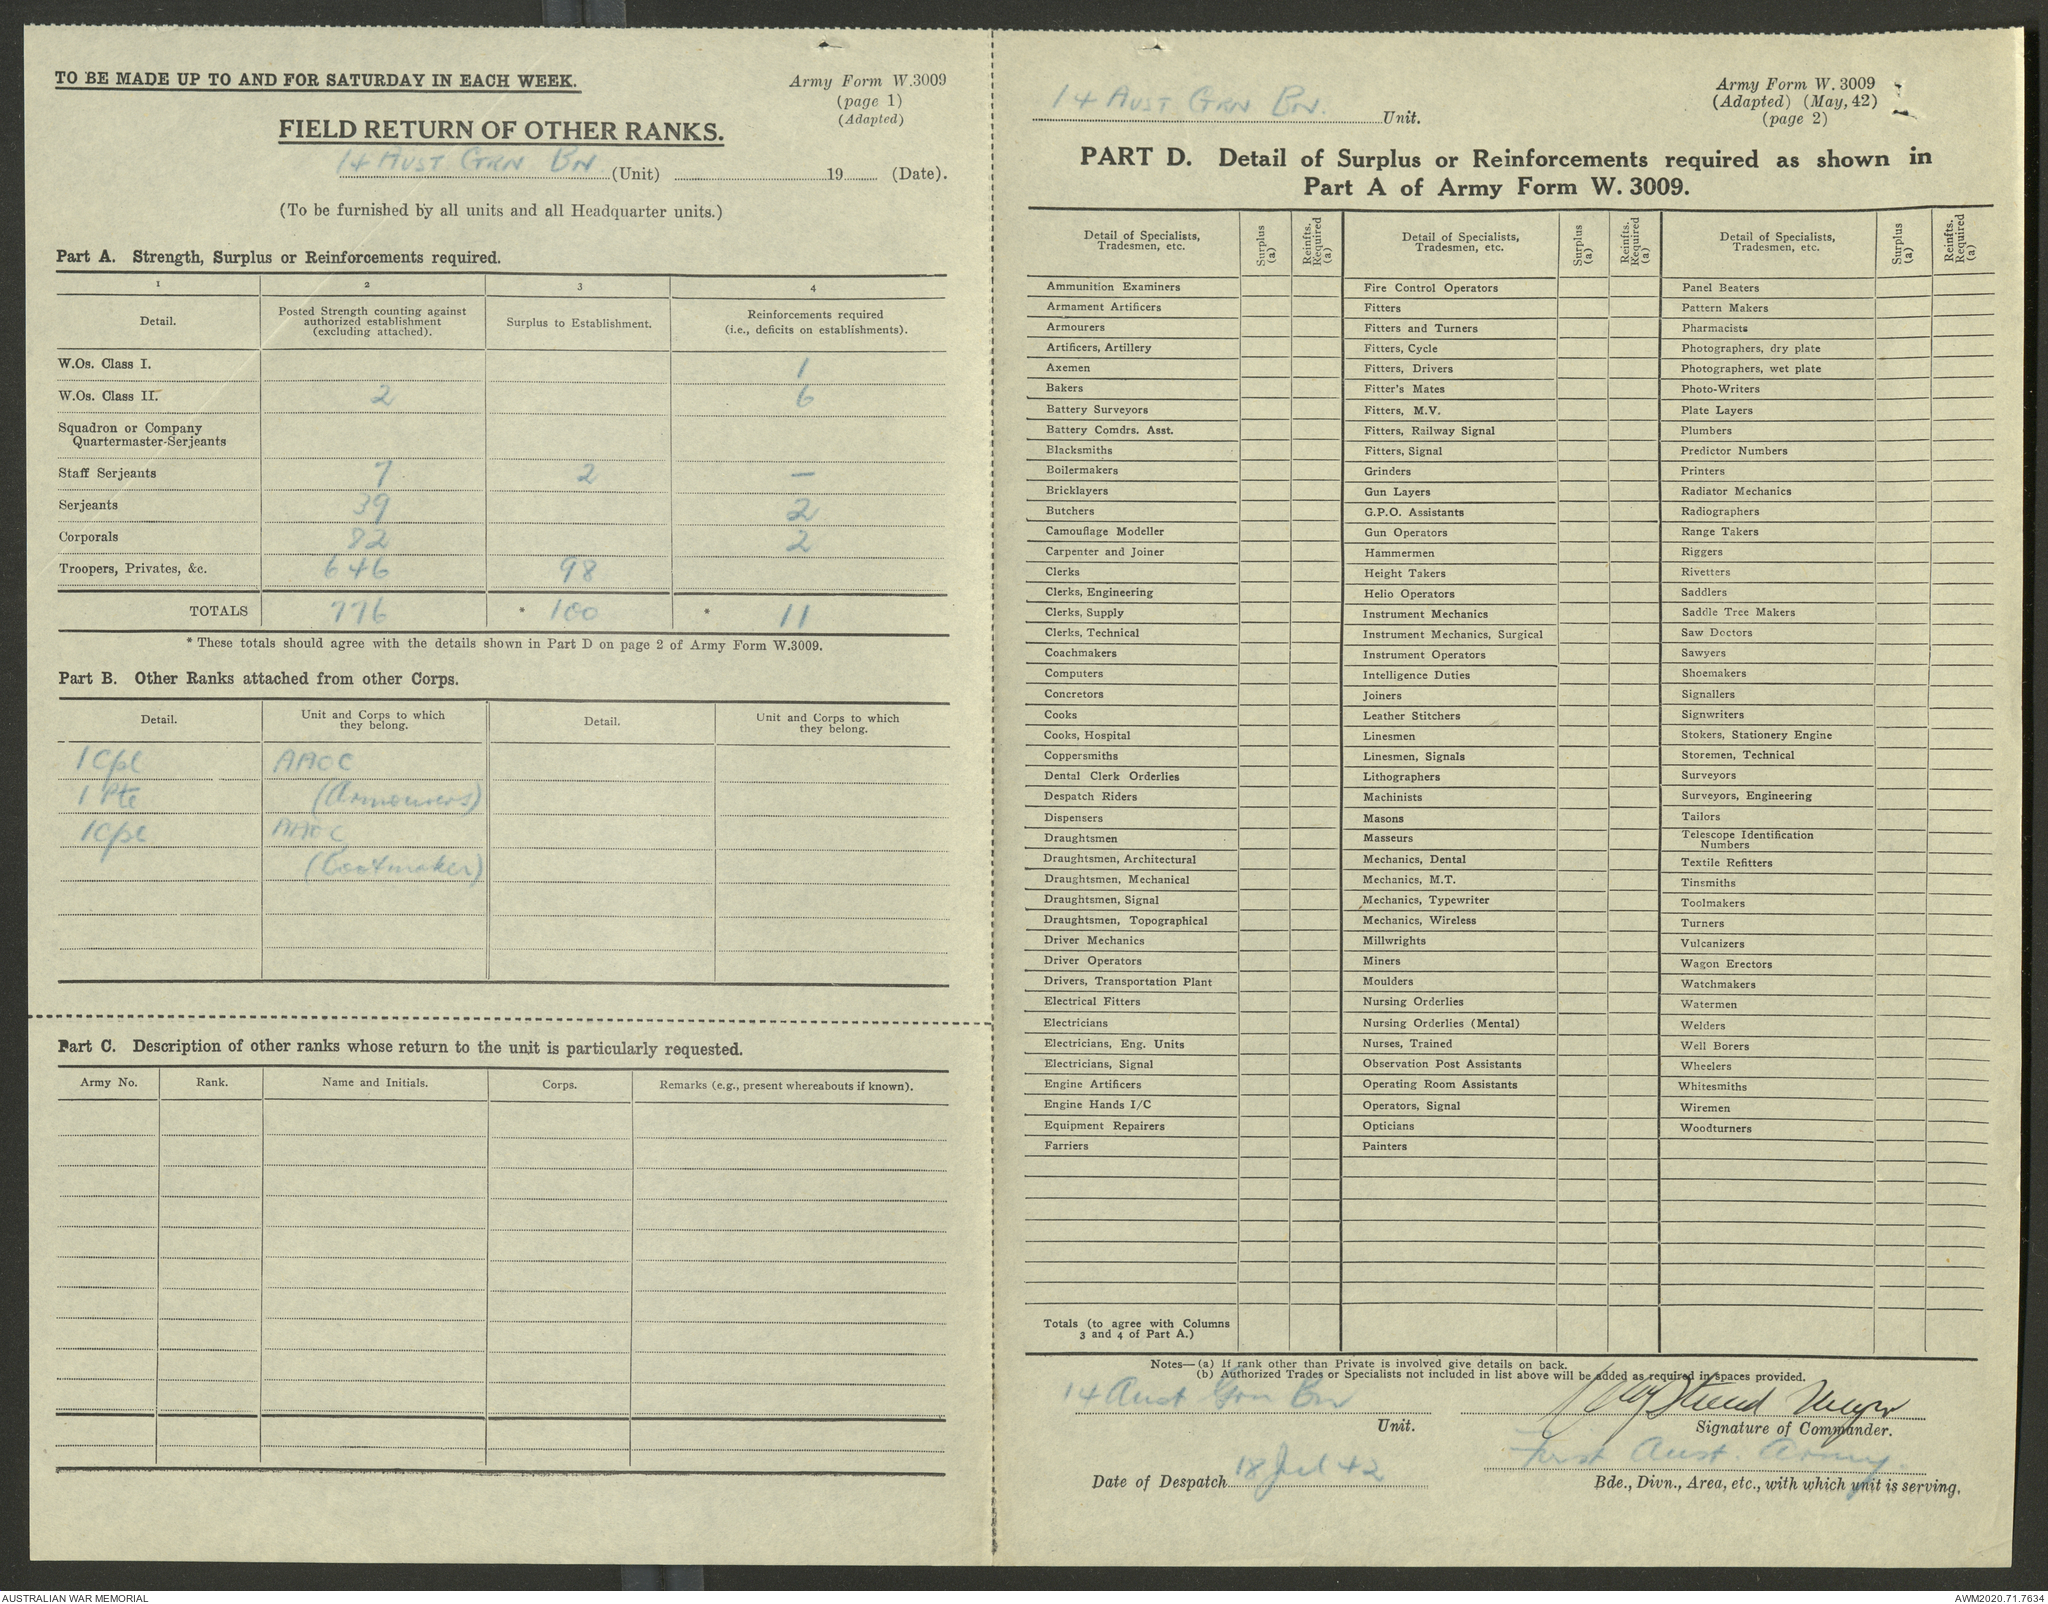 TO BE MADE UP TO AND FOR SATURDAY IN EACH WEEK.
Army Form W.3009
(page 1)
(Adapted)
FIELD RETURN OF OTHER RANKS.
14 AUST GRN BN (Unit) 19 (Date).
(To be furnished by all units and all Headquarter units.)
Part A. Strength, Surplus or Reinforcements required.
1 2 3 4
Detail. Posted Strength counting against authorized establishment (excluding attached). Surplus to Establishment. Reinforcements required (i.e., deficits on establishments).
W.Os. Class I. 1
W.Os. Class II. 2 6
Squadron or Company
Quartermaster-Serjeants
Staff Serjeants 7 2 —
Serjeants 39 2
Corporals 82 2
Troopers, Privates, &c. 646 98
TOTALS 776 * 100 * 11
* These totals should agree with the details shown in Part D on page 2 of Army Form W.3009.
Part B. Other Ranks attached from other Corps.
Detail. Unit and Corps to which they belong. Detail. Unit and Corps to which they belong.
1 Cpl AAOC
1 Pte (Armourers)
1 Cpl AAOC
(Bootmaker)
Part C. Description of other ranks whose return to the unit is particularly requested.
Army No. Rank. Name and Initials. Corps. Remarks (e.g., present whereabouts if known).
14 AUST GRN BN. Unit.
Army Form W. 3009
(Adapted) (May, 42)
(page 2)
PART D. Detail of Surplus or Reinforcements required as shown in
Part A of Army Form W. 3009.
Detail of Specialists, Tradesmen, etc. Surplus (a) Reinfts. Required (a) Detail of Specialists, Tradesmen, etc. Surplus (a) Reinfts. Required (a) Detail of Specialists, Tradesmen, etc. Surplus (a) Reinfts. Required (a)
Ammunition Examiners Fire Control Operators Panel Beaters
Armament Artificers Fitters Pattern Makers
Armourers Fitters and Turners Pharmacists
Artificers, Artillery Fitters, Cycle Photographers, dry plate
Axemen Fitters, Drivers Photographers, wet plate
Bakers Fitter's Mates Photo-Writers
Battery Surveyors Fitters, M.V. Plate Layers
Battery Comdrs. Asst. Fitters, Railway Signal Plumbers
Blacksmiths Fitters, Signal Predictor Numbers
Boilermakers Grinders Printers
Bricklayers Gun Layers Radiator Mechanics
Butchers G.P.O. Assistants Radiographers
Camouflage Modeller Gun Operators Range Takers
Carpenter and Joiner Hammermen Riggers
Clerks Height Takers Rivetters
Clerks, Engineering Helio Operators Saddlers
Clerks, Supply Instrument Mechanics Saddle Tree Makers
Clerks, Technical Instrument Mechanics, Surgical Saw Doctors
Coachmakers Instrument Operators Sawyers
Computers Intelligence Duties Shoemakers
Concretors Joiners Signallers
Cooks Leather Stitchers Signwriters
Cooks, Hospital Linesmen Stokers, Stationery Engine
Coppersmiths Linesmen, Signals Storemen, Technical
Dental Clerk Orderlies Lithographers Surveyors
Despatch Riders Machinists Surveyors, Engineering
Dispensers Masons Tailors
Draughtsmen Masseurs Telescope Identification Numbers
Draughtsmen, Architectural Mechanics, Dental Textile Refitters
Draughtsmen, Mechanical Mechanics, M.T. Tinsmiths
Draughtsmen, Signal Mechanics, Typewriter Toolmakers
Draughtsmen, Topographical Mechanics, Wireless Turners
Driver Mechanics Millwrights Vulcanizers
Driver Operators Miners Wagon Erectors
Drivers, Transportation Plant Moulders Watchmakers
Electrical Fitters Nursing Orderlies Watermen
Electricians Nursing Orderlies (Mental) Welders
Electricians, Eng. Units Nurses, Trained Well Borers
Electricians, Signal Observation Post Assistants Wheelers
Engine Artificers Operating Room Assistants Whitesmiths
Engine Hands I/C Operators, Signal Wiremen
Equipment Repairers Opticians Woodturners
Farriers Painters
Totals (to agree with Columns
3 and 4 of Part A.)
Notes—(a) If rank other than Private is involved give details on back.
(b) Authorized Trades or Specialists not included in list above will be added as required in spaces provided.
14 Aust Grn Bn Major
Unit. Signature of Commander.
First Aust Army.
Date of Despatch 18 Jul 42 Bde., Divn., Area, etc., with which unit is serving.
AUSTRALIAN WAR MEMORIAL AWM2020.71.7634